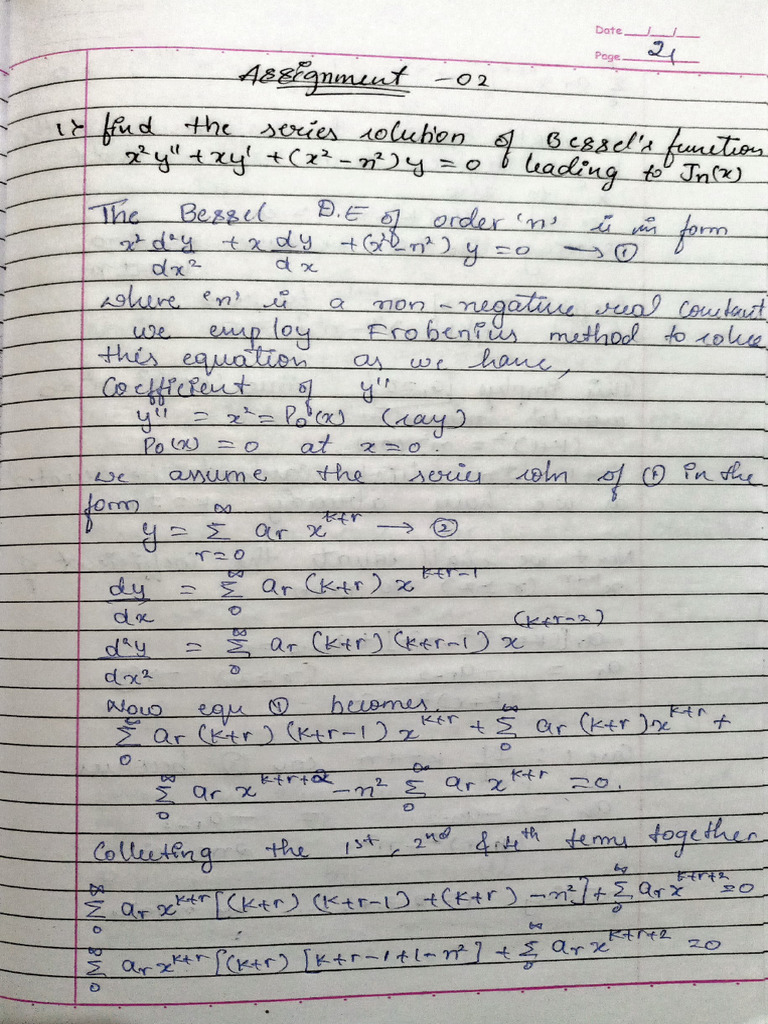 Date __/__/__
Page 21
Assignment - 02
1> find the series solution of Bessel's function
x²y'' + xy' + (x² - n²) y = 0 leading to Jn(x)
The Bessel D.E of order 'n' is in form
x² d²y/dx² + x dy/dx + (x² - n²) y = 0 → ①
where 'n' is a non-negative real constant
we employ Frobenius method to solve
this equation as we have,
Coefficient of y''
y'' = x² = P₀(x) (say)
P₀(x) = 0 at x = 0.
we assume the series soln of ① in the
form
y = ∞Σr=0 aᵣ x^(k+r) → ②
dy/dx = ∞Σ0 aᵣ (k+r) x^(k+r-1)
d²y/dx² = ∞Σ0 aᵣ (k+r) (k+r-1) x^(k+r-2)
Now equ ① becomes.
∞Σ0 aᵣ (k+r) (k+r-1) x^(k+r) + ∞Σ0 aᵣ (k+r) x^(k+r) +
∞Σ0 aᵣ x^(k+r+2) - n² ∞Σ0 aᵣ x^(k+r) = 0.
Collecting the 1st, 2nd & 4th terms together
∞Σ0 aᵣ x^(k+r) [(k+r) (k+r-1) + (k+r) - n²] + ∞Σ0 aᵣ x^(k+r+2) = 0
∞Σ0 aᵣ x^(k+r) [(k+r) [k+r-1+1-n²] + ∞Σ0 aᵣ x^(k+r+2) = 0